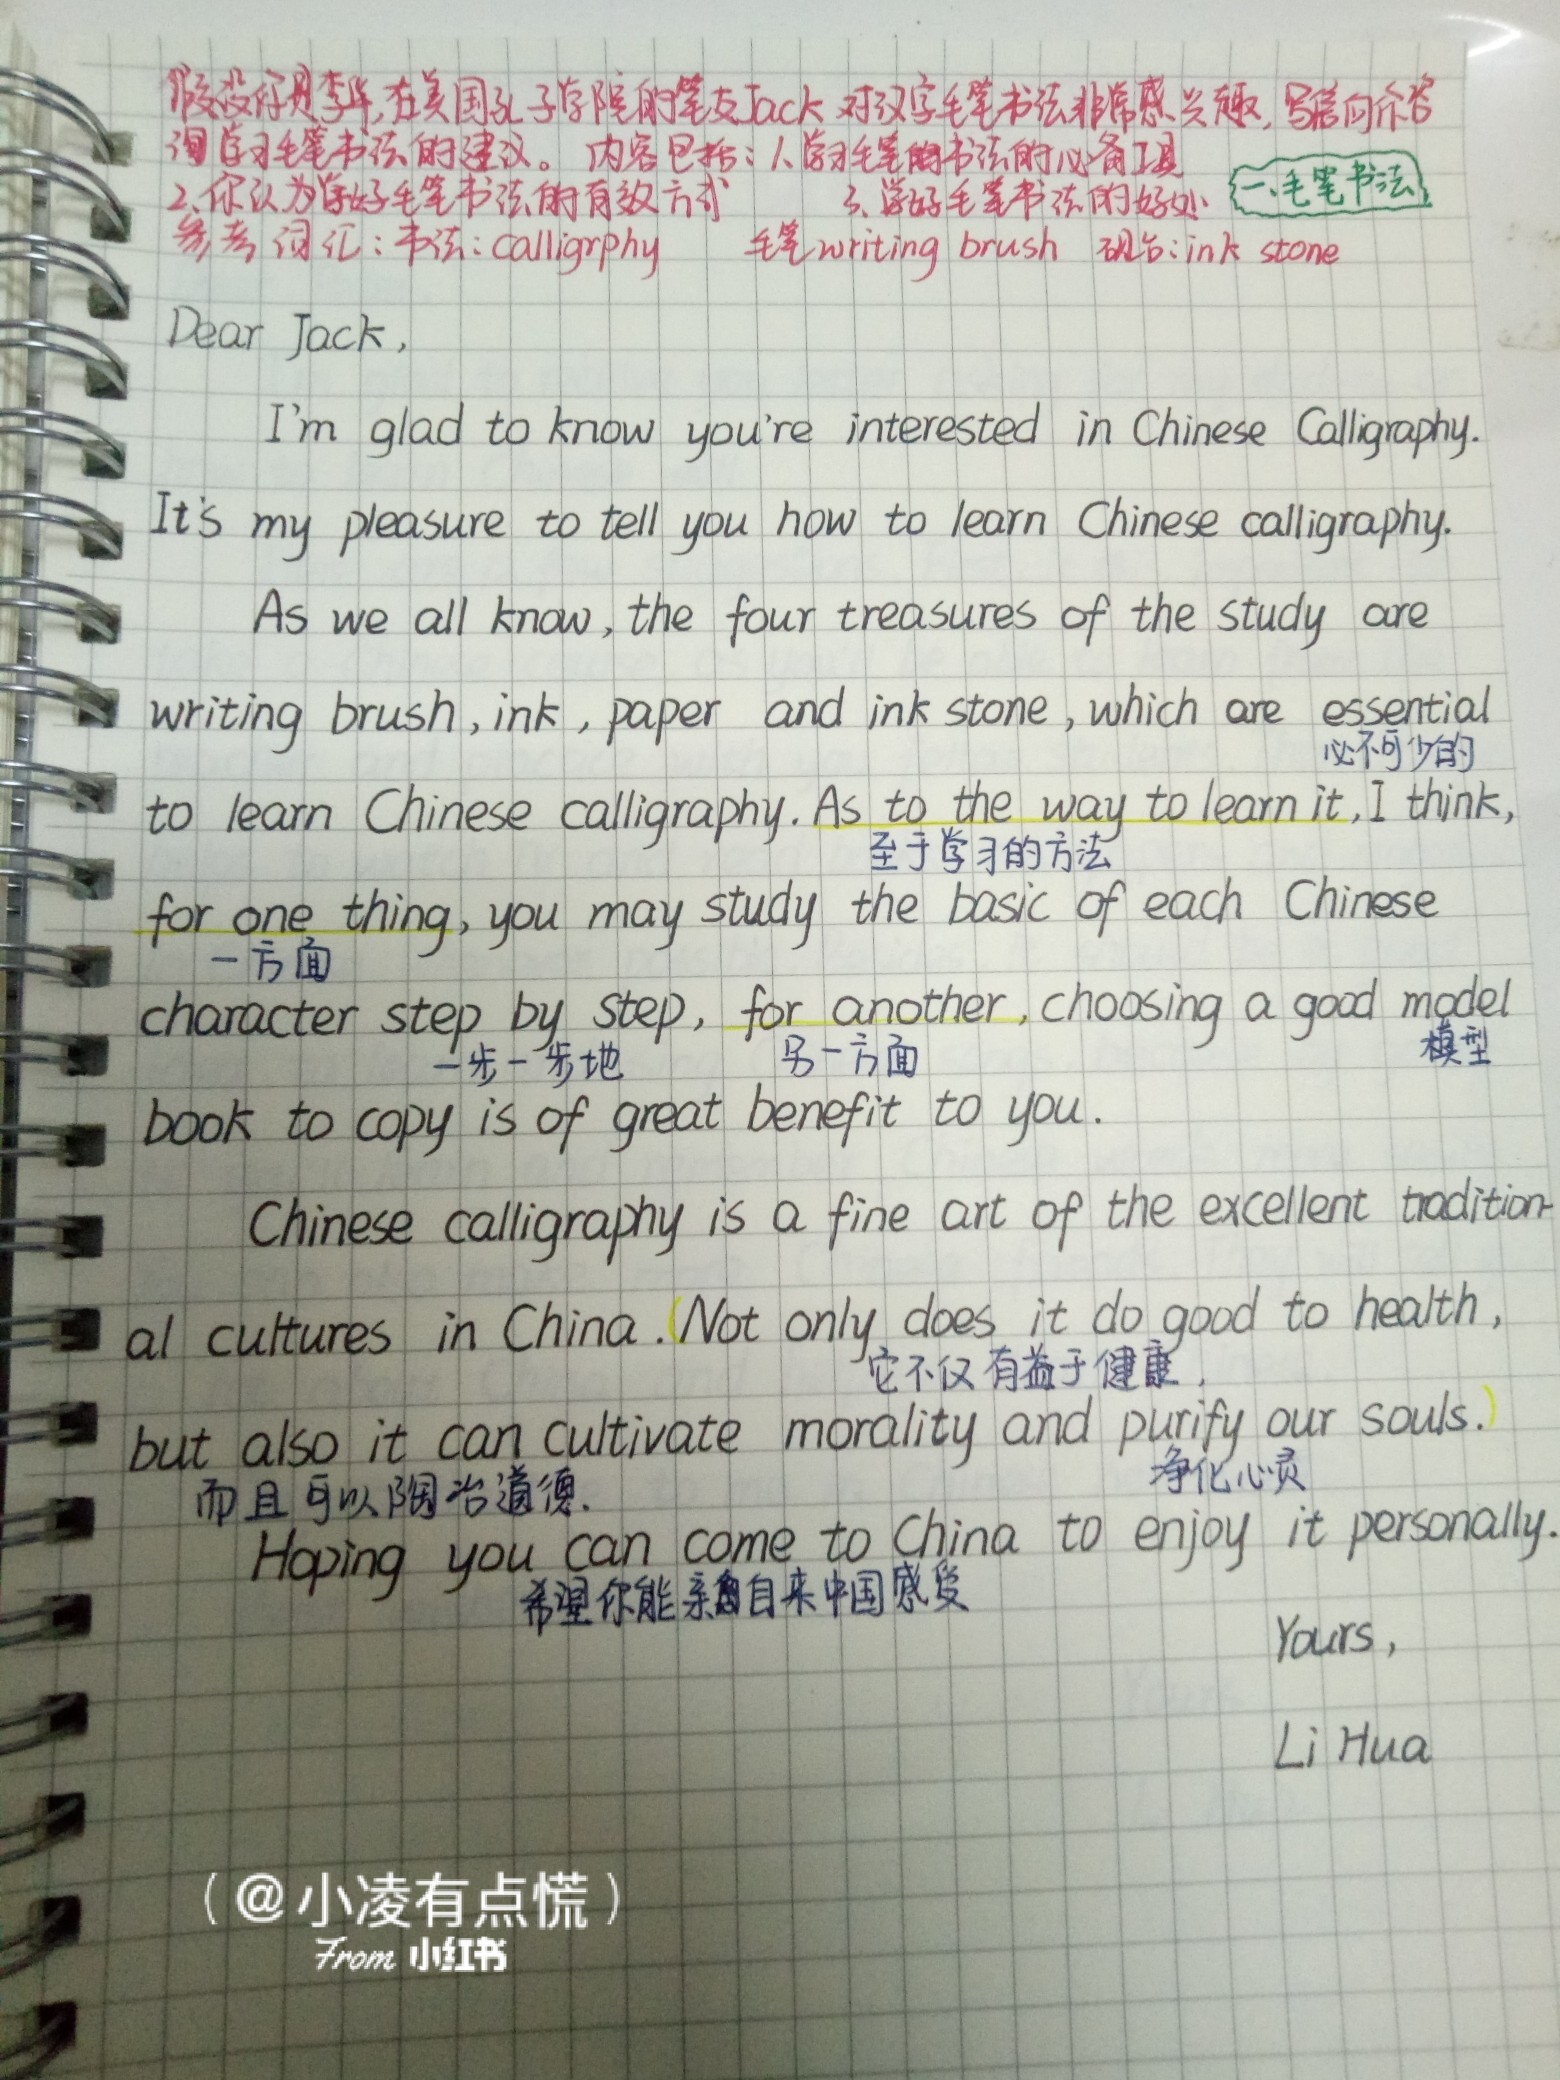 假设你是李华,在美国孔子学院的笔友Jack对汉字毛笔书法非常感兴趣,写信向你咨
询学习毛笔书法的建议。内容包括:1、学习毛笔书法的必备工具
2、你认为学好毛笔书法的有效方式 3、学好毛笔书法的好处
一、毛笔书法
参考词汇:书法:calligrphy 毛笔writing brush 砚台:ink stone
Dear Jack,
I'm glad to know you're interested in Chinese Calligraphy.
It's my pleasure to tell you how to learn Chinese calligraphy.
As we all know, the four treasures of the study are
writing brush, ink, paper and ink stone, which are essential
必不可少的
to learn Chinese calligraphy. As to the way to learn it, I think,
至于学习的方法
for one thing, you may study the basic of each Chinese
一方面
character step by step, for another, choosing a good model
一步一步地 另一方面 模型
book to copy is of great benefit to you.
Chinese calligraphy is a fine art of the excellent tradition-
al cultures in China. (Not only does it do good to health,
它不仅有益于健康,
but also it can cultivate morality and purify our souls.)
而且可以陶冶道德. 净化心灵
Hoping you can come to China to enjoy it personally.
希望你能亲自来中国感受
Yours,
Li Hua
(@小凌有点慌)
From 小红书